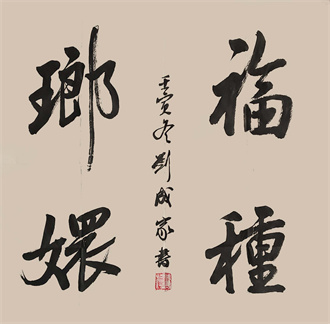 福種
瑯嬛
壬寅冬劉成家書